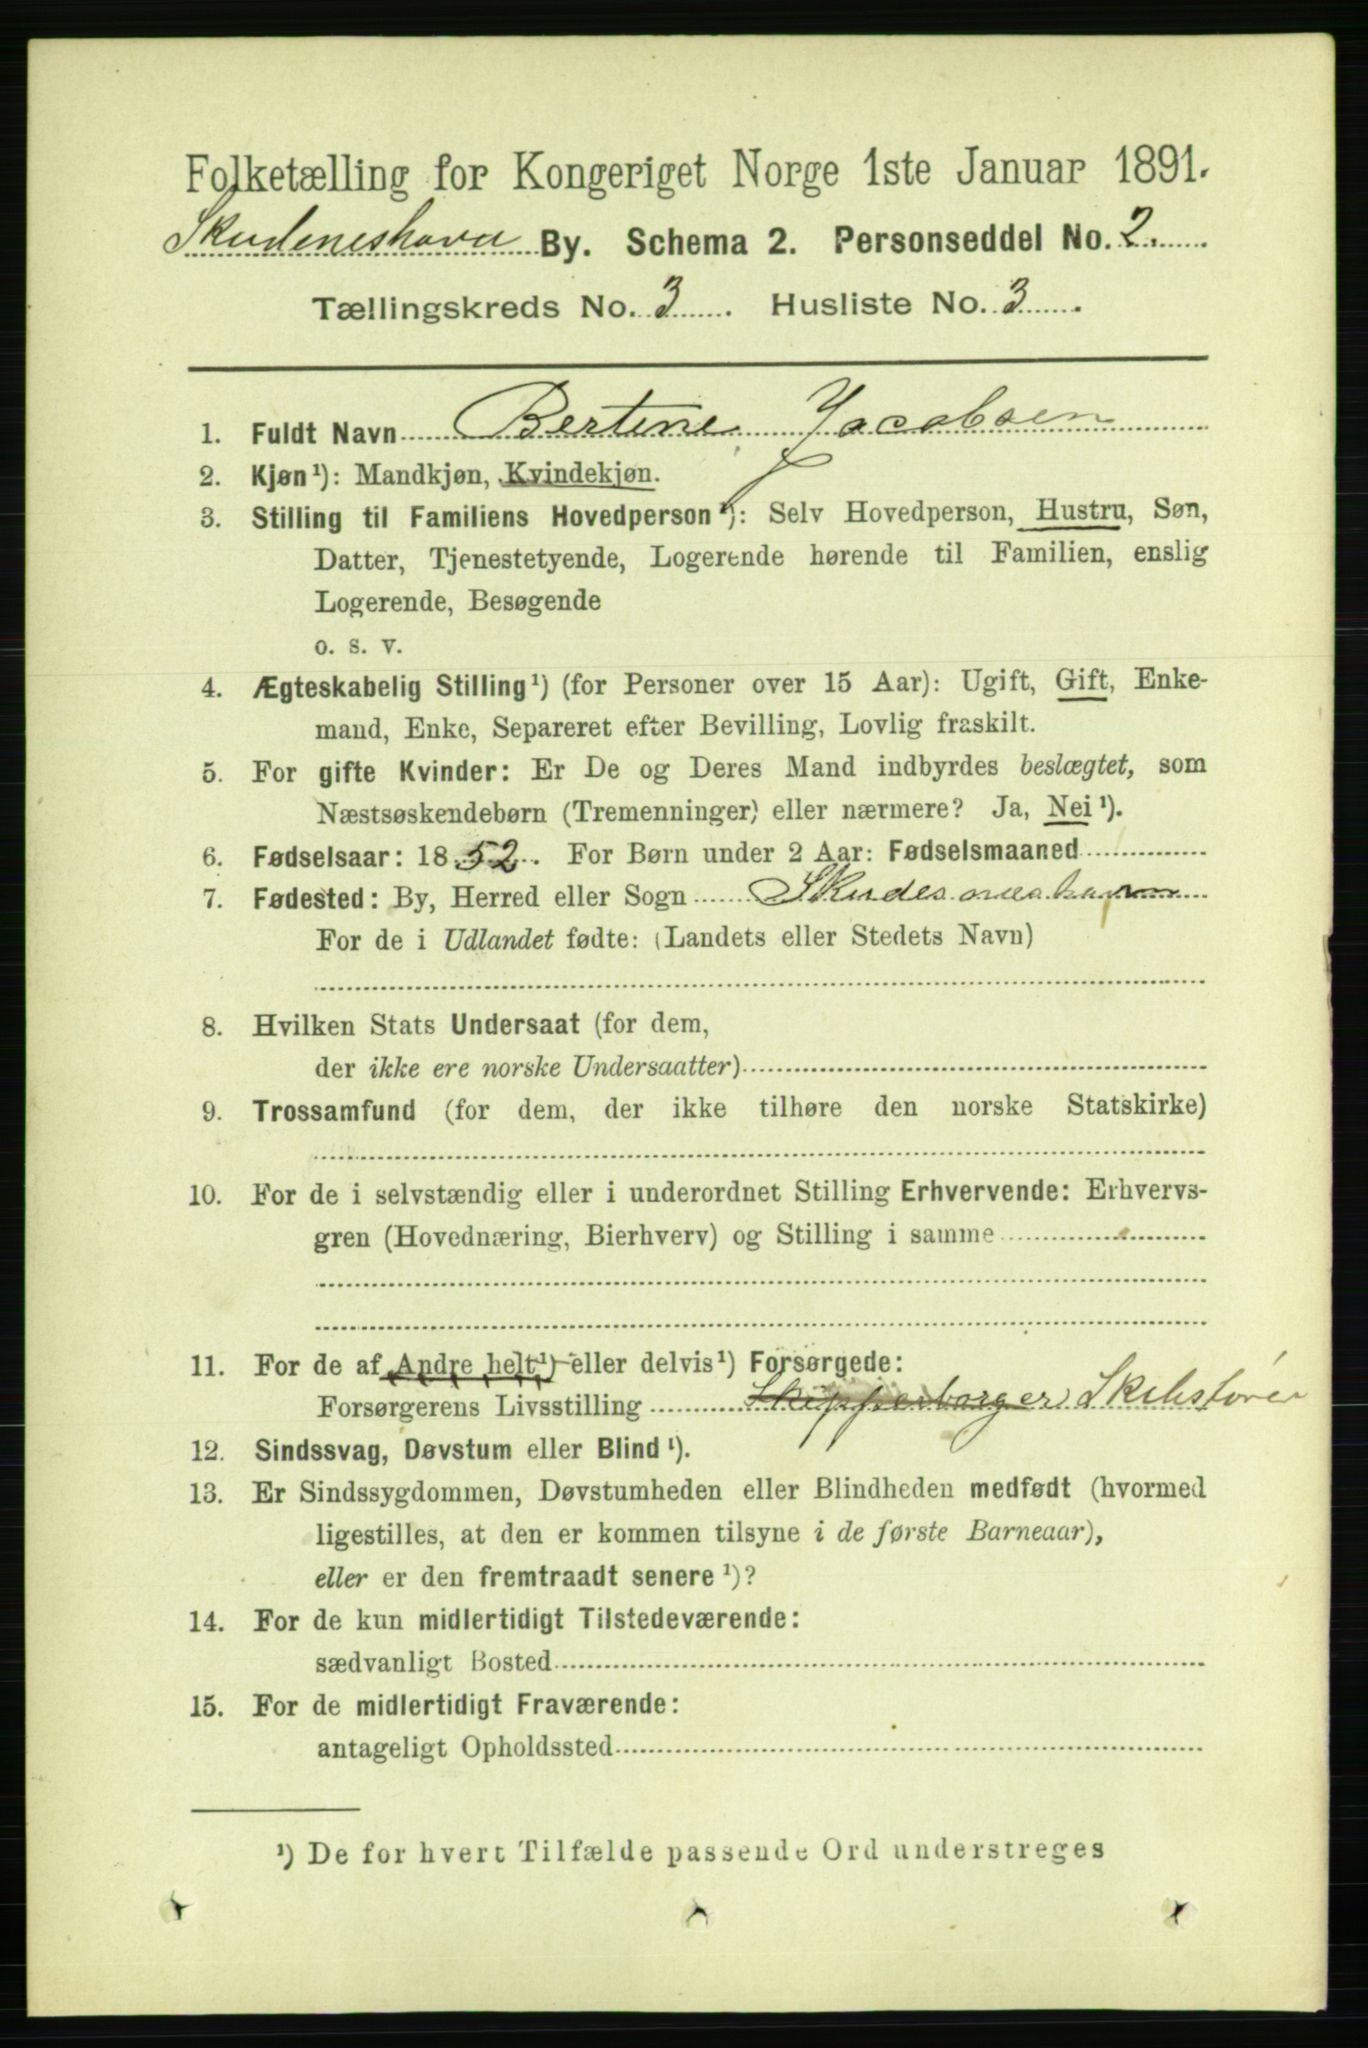 Folketælling for Kongeriget Norge 1ste Januar 1891.
Skudeneshavn By. Schema 2. Personseddel No. 2.
Tællingskreds No. 3. Husliste No. 3.
1. Fuldt Navn Bertine Jacobsen
2. Kjøn¹): Mandkjøn, Kvindekjøn.
3. Stilling til Familiens Hovedperson¹): Selv Hovedperson, Hustru, Søn,
Datter, Tjenestetyende, Logerende hørende til Familien, enslig
Logerende, Besøgende
o. s. v.
4. Ægteskabelig Stilling¹) (for Personer over 15 Aar): Ugift, Gift, Enke-
mand, Enke, Separeret efter Bevilling, Lovlig fraskilt.
5. For gifte Kvinder: Er De og Deres Mand indbyrdes beslægtet, som
Næstsøskendebørn (Tremenninger) eller nærmere? Ja, Nei¹).
6. Fødselsaar: 1852. For Børn under 2 Aar: Fødselsmaaned
7. Fødested: By, Herred eller Sogn Skudesneshavn
For de i Udlandet fødte: (Landets eller Stedets Navn)
8. Hvilken Stats Undersaat (for dem,
der ikke ere norske Undersaatter)
9. Trossamfund (for dem, der ikke tilhøre den norske Statskirke)
10. For de i selvstændig eller i underordnet Stilling Erhvervende: Erhvervs-
gren (Hovednæring, Bierhverv) og Stilling i samme
11. For de af Andre helt¹) eller delvis¹) Forsørgede:
Forsørgerens Livsstilling Skipperborger Skibsfører
12. Sindssvag, Døvstum eller Blind¹).
13. Er Sindssygdommen, Døvstumheden eller Blindheden medfødt (hvormed
ligestilles, at den er kommen tilsyne i de første Barneaar),
eller er den fremtraadt senere¹)?
14. For de kun midlertidigt Tilstedeværende:
sædvanligt Bosted
15. For de midlertidigt Fraværende:
antageligt Opholdssted
¹) De for hvert Tilfælde passende Ord understreges